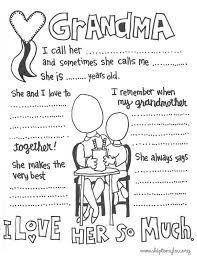 GRANDMA
I call her
and sometimes she calls me
She is ...... years old.
She and I love to
I remember when
my grandmother
together!
She makes the
very best
She always says
I LOVE HER SO MUCH.
www.skiptomylou.org